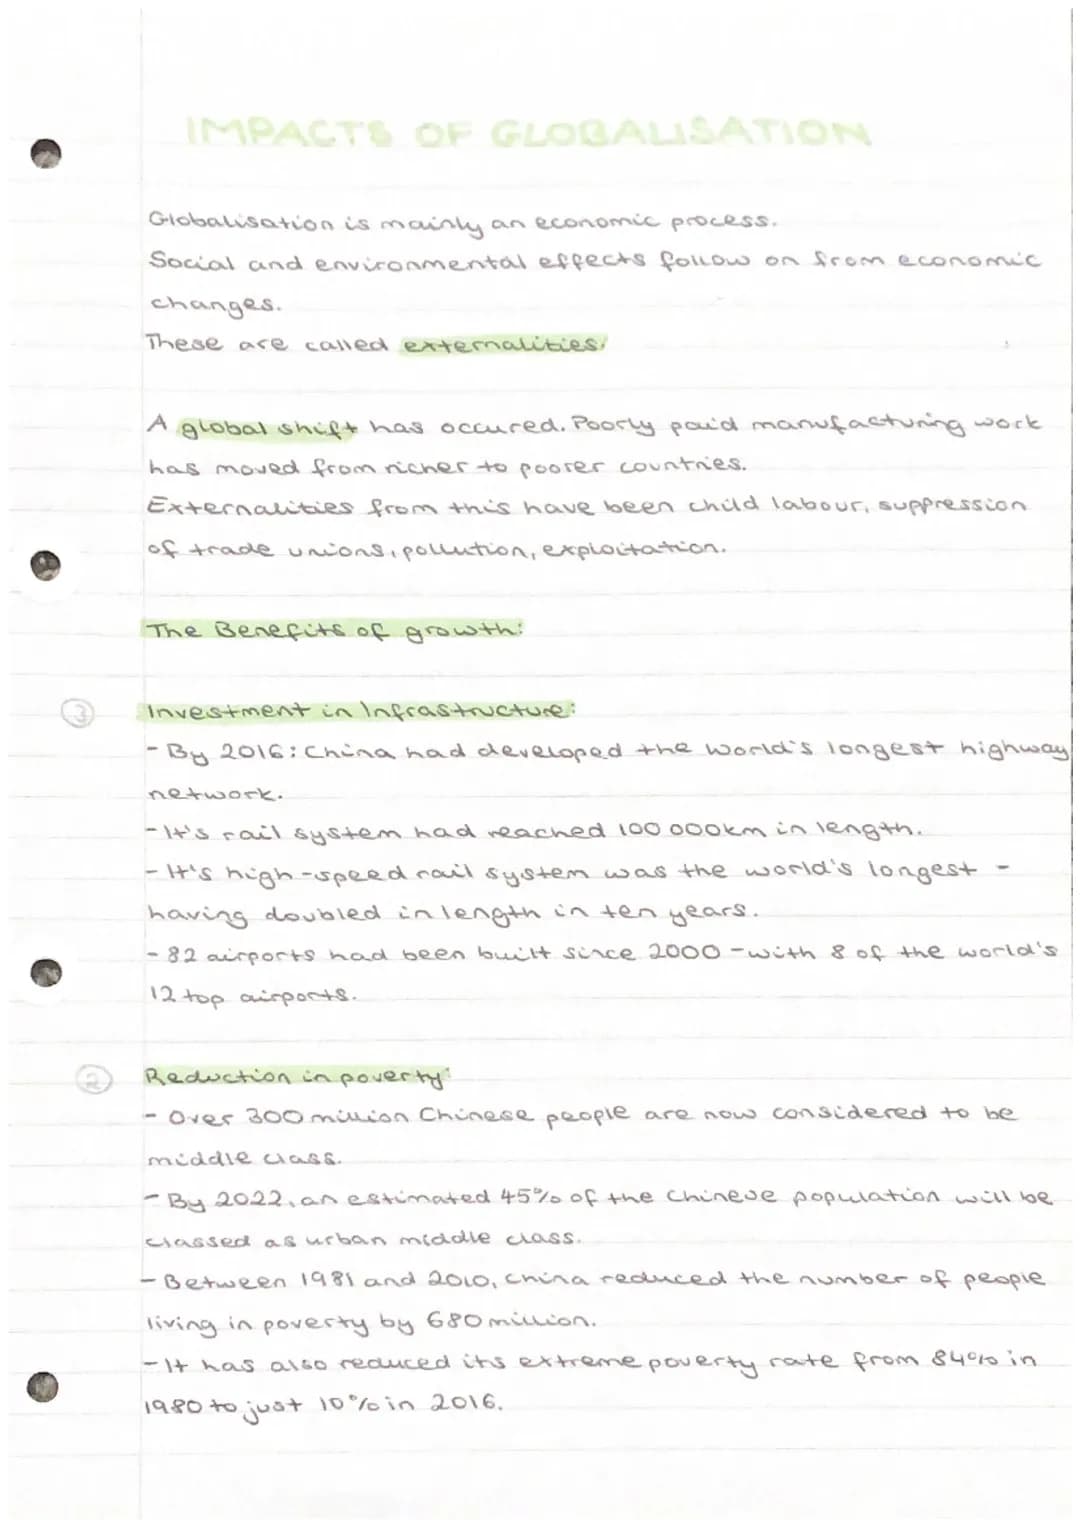 IMPACTS OF GLOBALISATION
Globalisation is mainly an economic process.
Social and environmental effects follow on from economic
changes.
These are called externalities.
A global shift has occured. Poorly paid manufacturing work
has moved from richer to poorer countries.
Externalities from this have been child labour, suppression
of trade unions, pollution, exploitation.
The Benefits of growth:
③ Investment in Infrastructure:
- By 2016: China had developed the world's longest highway
network.
- It's rail system had reached 100 000km in length.
- It's high-speed rail system was the world's longest -
having doubled in length in ten years.
- 82 airports had been built since 2000 - with 8 of the world's
12 top airports.
② Reduction in poverty:
- Over 300 million Chinese people are now considered to be
middle class.
- By 2022, an estimated 45% of the Chinese population will be
classed as urban middle class.
- Between 1981 and 2010, China reduced the number of people
living in poverty by 680 million.
- It has also reduced its extreme poverty rate from 84% in
1980 to just 10% in 2016.